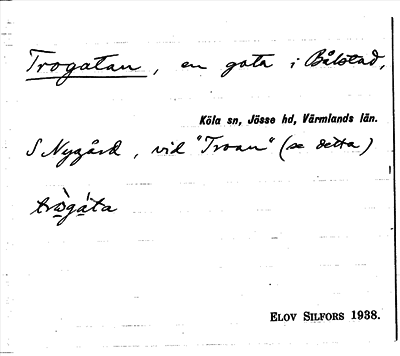 Trogatan, en gata i Bålstad,
Köla sn, Jösse hd, Värmlands län.
S Nygård, vid "Troan" (se detta)
trògáta
ELOV SILFORS 1938.